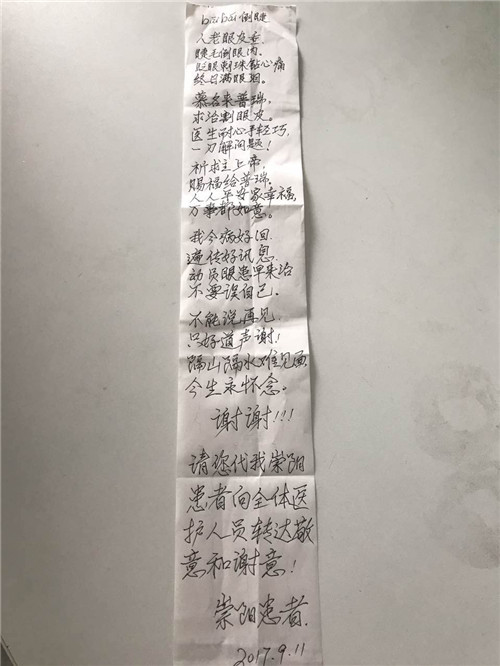 bai bai 倒睫
人老眼皮垂,
睫毛倒眼内。
眨眼刺珠钻心痛
终日满眼泪。
慕名来普瑞,
求治割眼皮。
医生耐心手轻巧,
一刀解问题!
祈求主上帝,
赐福给普瑞.
人人平安家幸福,
万事都如意。
我今病好回
遍传好讯息.
动员眼患早来治
不要误自己.
不能说再见
只好道声谢!
隔山隔水难见面.
今生永怀念。
谢谢!!!
请您代我崇阳
患者向全体医
护人员转达敬
意和谢意!
崇阳患者.
2017.9.11